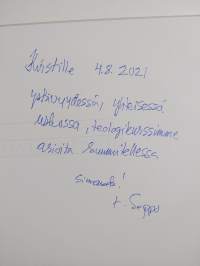 Kristille 4.8.2021
ystävyydessä, yhteisessä
uskossa, teologikurssimme
asioita suunnitellessa
siunausta!
t. Seppo